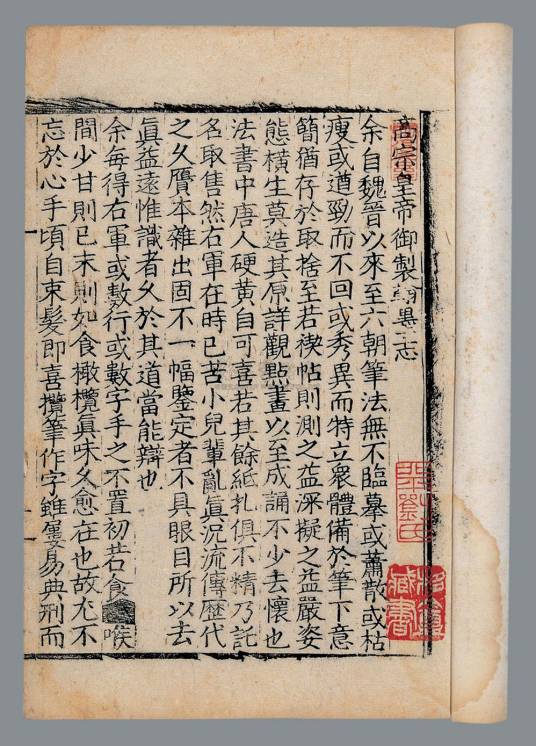 高宗皇帝御製翰墨志
余自魏晉以來至六朝筆法無不臨摹或蕭散或枯
瘦或遒勁而不回或秀異而特立衆體備於筆下意
簡猶存於取捨至若禊帖則測之益深擬之益嚴姿
態橫生莫造其原詳觀點畫以至成誦不少去懷也
法書中唐人硬黄自可喜若其餘紙札俱不精乃託
名取售然右軍在時已苦小兒輩亂眞況流傳歷代
之久贗本雜出固不一幅鑒定者不具眼目所以去
眞益遠惟識者久於其道當能辯也
余每得右軍或數行或數字手之不置初若食喉
間少甘則已末則如食橄欖眞味久愈在也故尤不
忘於心手頃自束髮即喜攬筆作字雖屢易典刑而
藏書